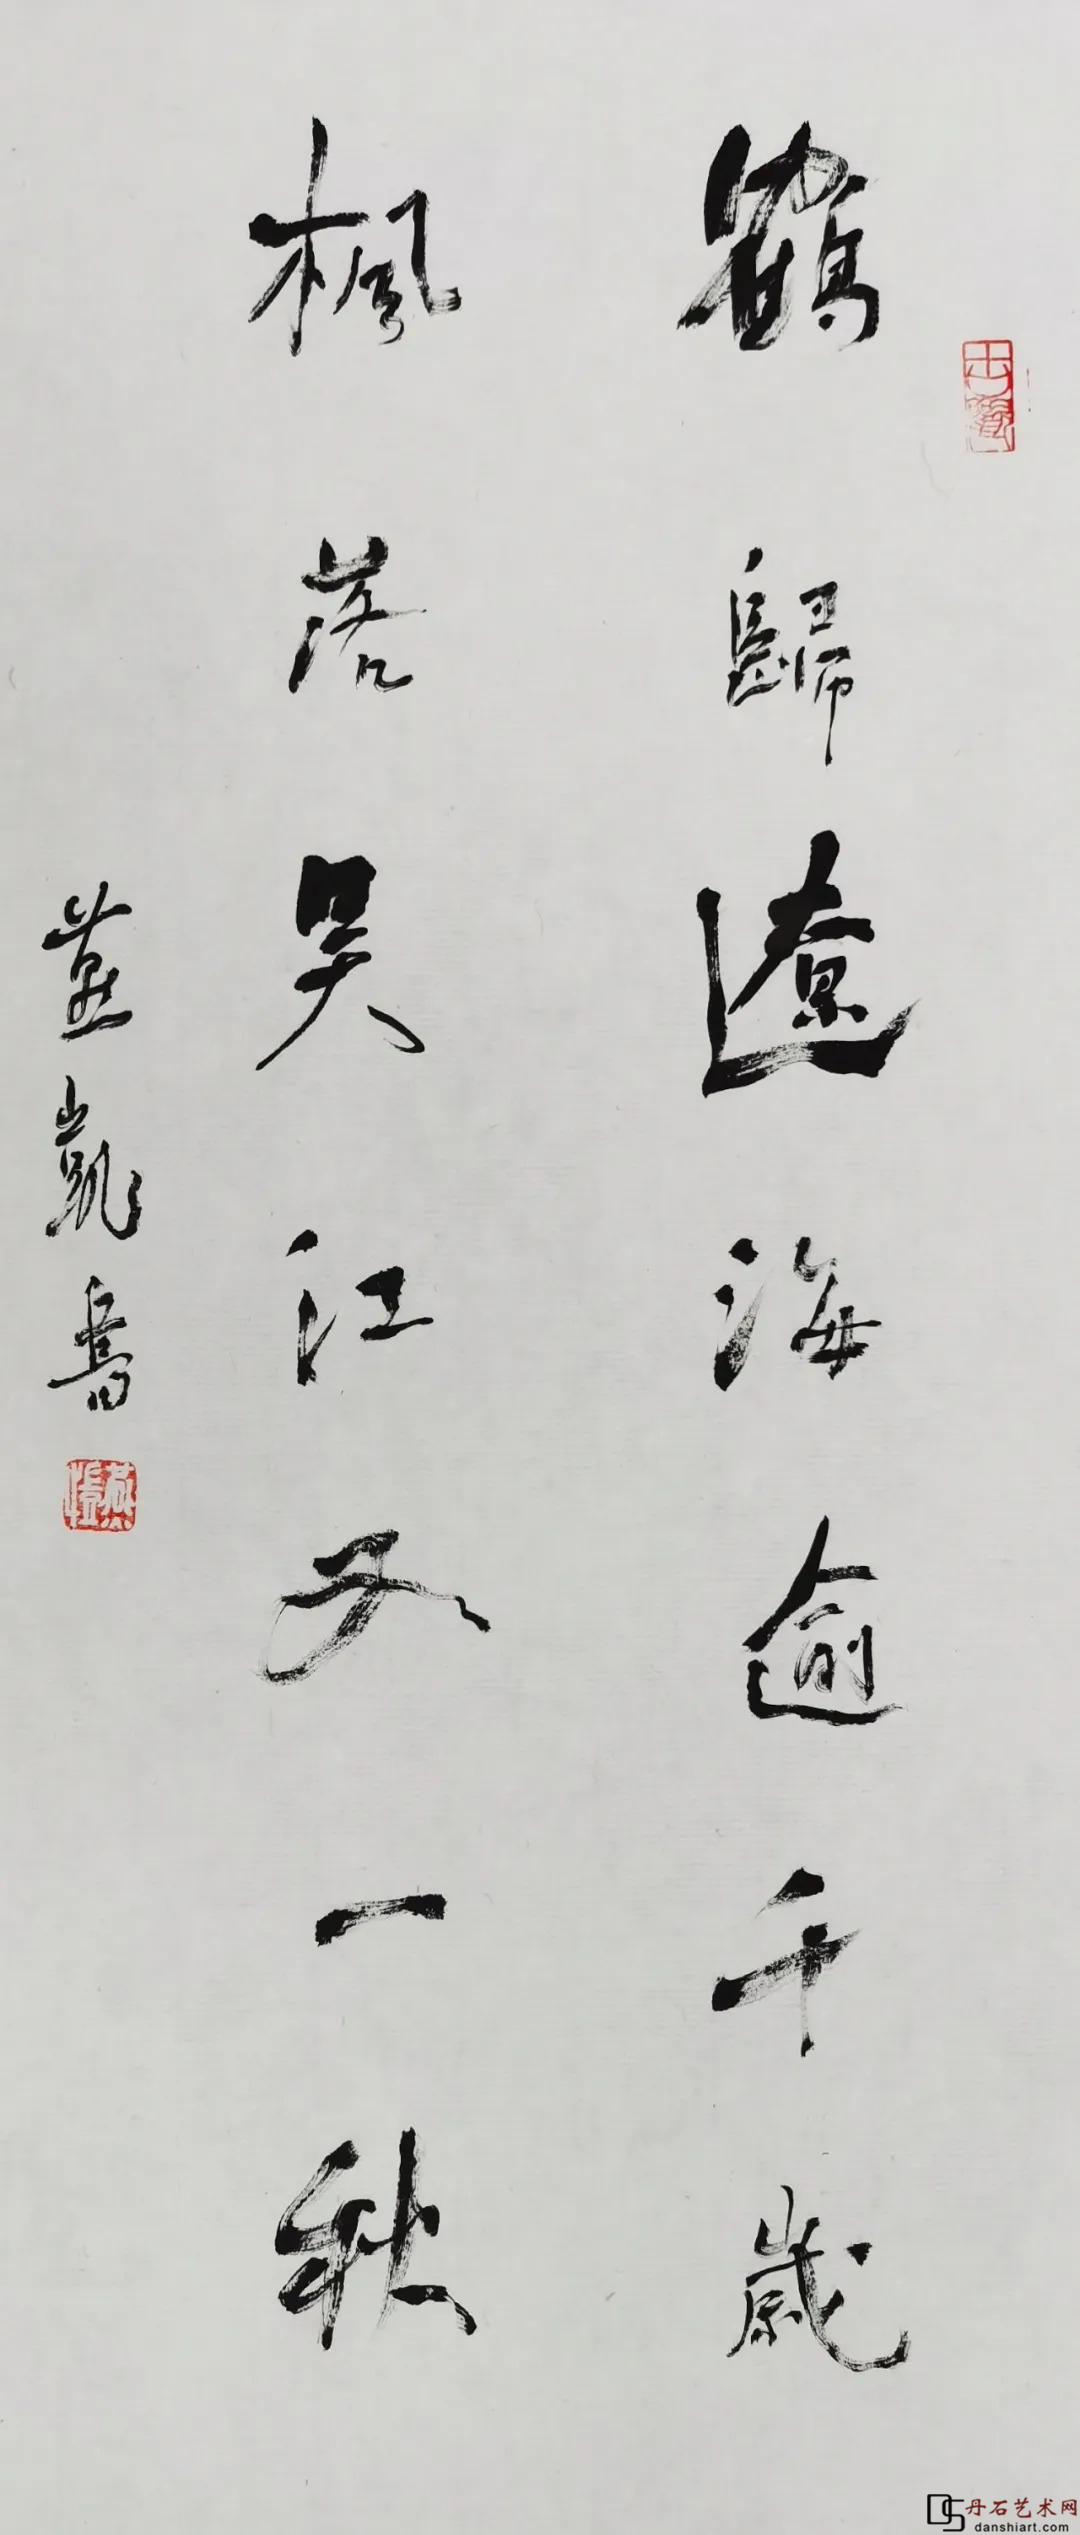 鶴歸遼海逾千歲
楓落吴江又一秋
燕凱書
丹石艺术网
danshiart.com